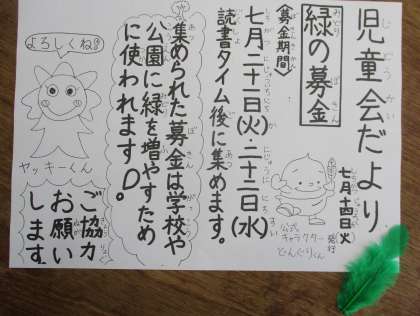 児童会だより
七月十四日(火)
発行
緑の募金
公式
キャラクター
どんぐりくん
〈募金期間〉
七月二十一日(火)・二十二日(水)
読書タイム後に集めます。
集められた募金は学校や
公園に緑を増やすため
に使われますD。
よろしくね
ヤッキーくん
ご協力
お願い
します